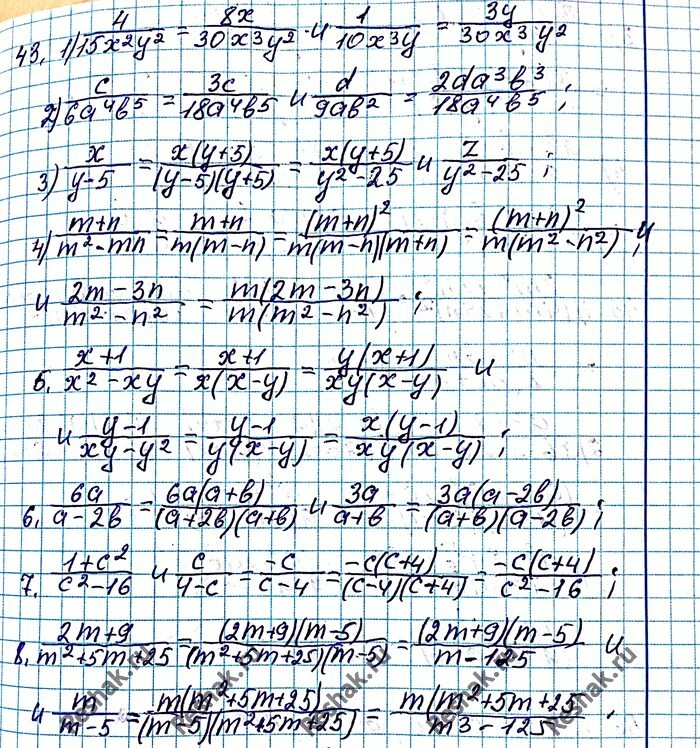 43. 1) 4/15x²y² = 8x/30x³y² и 1/10x³y = 3y/30x³y²
2) c/6a⁴b⁵ = 3c/18a⁴b⁵ и d/9ab² = 2da³b³/18a⁴b⁵ ;
3) x/y-5 = x(y+5)/(y-5)(y+5) = x(y+5)/y²-25 и z/y²-25 ;
4) m+n/m²-mn = m+n/m(m-n) = (m+n)²/m(m-n)(m+n) = (m+n)²/m(m²-n²) , и
и 2m-3n/m²-n² = m(2m-3n)/m(m²-n²) ;
5. x+1/x²-xy = x+1/x(x-y) = y(x+1)/xy(x-y) и
и y-1/xy-y² = y-1/y(x-y) = x(y-1)/xy(x-y) ;
6. 6a/a-2b = 6a(a+b)/(a+2b)(a+b) и 3a/a+b = 3a(a-2b)/(a+b)(a-2b) ;
7. 1+c²/c²-16 и c/4-c = -c/c-4 = -c(c+4)/(c-4)(c+4) = -c(c+4)/c²-16 ;
8. 2m+9/m²+5m+25 = (2m+9)(m-5)/(m²+5m+25)(m-5) = (2m+9)(m-5)/m-125 и
и m/m-5 = m(m²+5m+25)/(m-5)(m²+5m+25) = m(m²+5m+25/m3-125 .
Reshak.ru
Reshak.ru
Reshak.ru
Reshak.ru